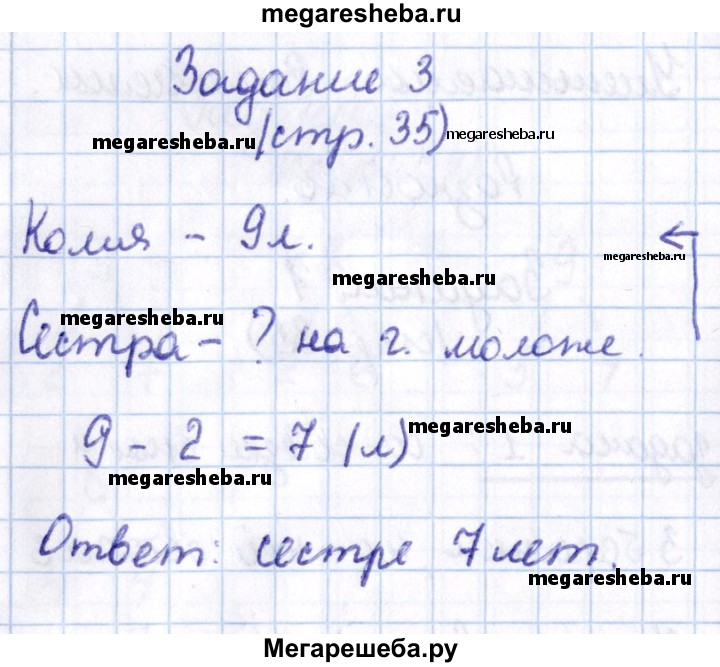 megaresheba.ru
Задание 3
megaresheba.ru (стр. 35) megaresheba.ru
Колия - 9 л.
megaresheba.ru
megaresheba.ru
megaresheba.ru
Сестра - ? на г. моложе.
9 - 2 = 7 (л) megaresheba.ru
megaresheba.ru
Ответ: сестре 7 лет.
megaresheba.ru
Мегарешеба.ру